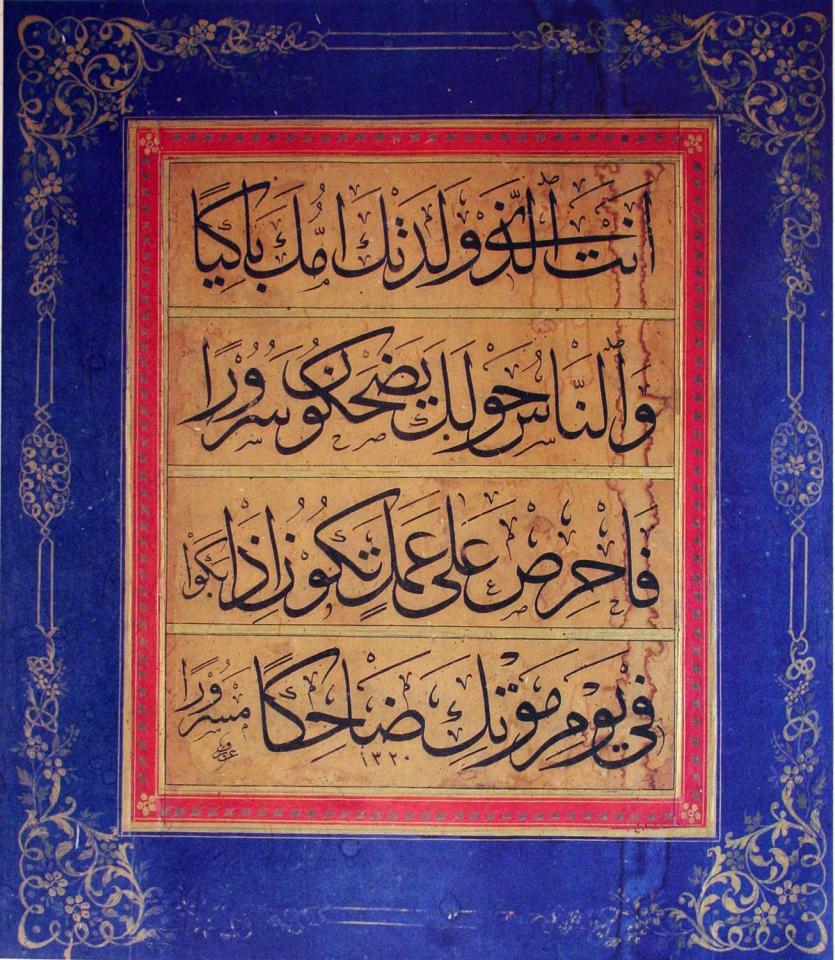 اَنْتَ الَّذِى وَلَدَتْكَ اُمُّكَ بَاكِيًا
وَالنَّاسُ حَوْلَكَ يَضْحَكُونَ سُرُورًا
فَاحْرِصْ عَلَى عَمَلٍ تَكُونُ اِذَا بَكَوْا
فِي يَوْمِ مَوْتِكَ ضَاحِكًا مَسْرُورًا
١٣٢٠